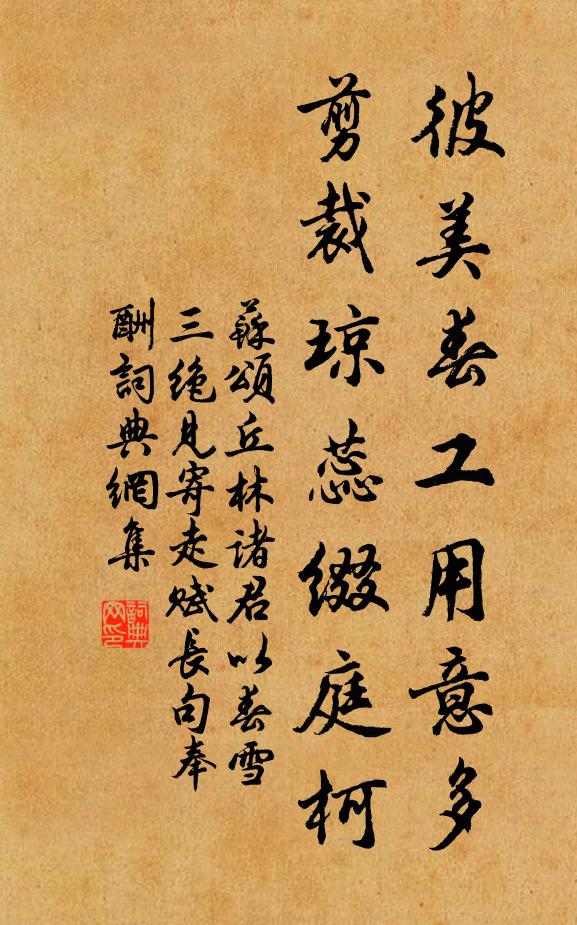 彼美春工用意多
剪裁琼蕊缀庭柯
蘇頌丘林诸君以春雪
三绝見寄走赋長句奉
酬詞典網集
詞典网印